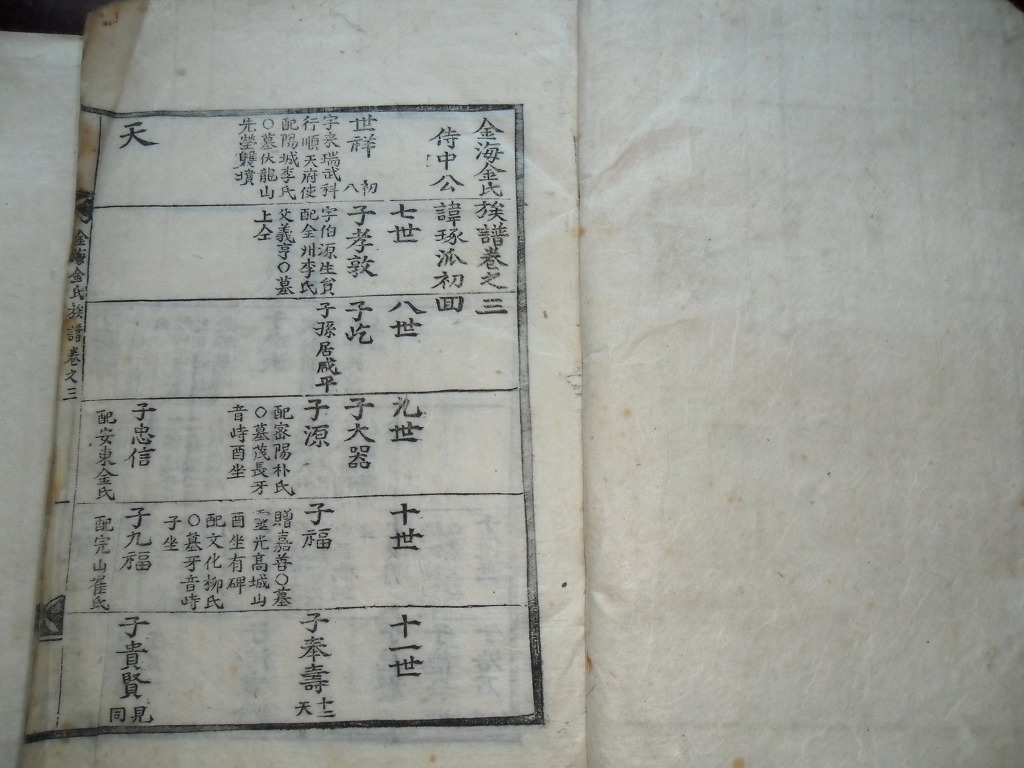 金海金氏族譜卷之三
侍中公諱琢派初回
世祥
初八
字衆瑞武科
行順天府使
配陽城李氏
○墓伏龍山
先塋雙墳
天
七世
子孝敦
字伯源生員
配全州李氏
父義亨○墓
上仝
八世
子屹
子孫居咸平
九世
子大器
子源
配密陽朴氏
○墓茂長牙
音峙酉坐
子忠信
配安東金氏
十世
子福
贈嘉善○墓
靈光高城山
酉坐有碑
配文化柳氏
○墓牙音峙
子坐
子九福
配完山崔氏
十一世
子奉壽
十二
天
子貴賢
見
同
金海金氏族譜卷之三